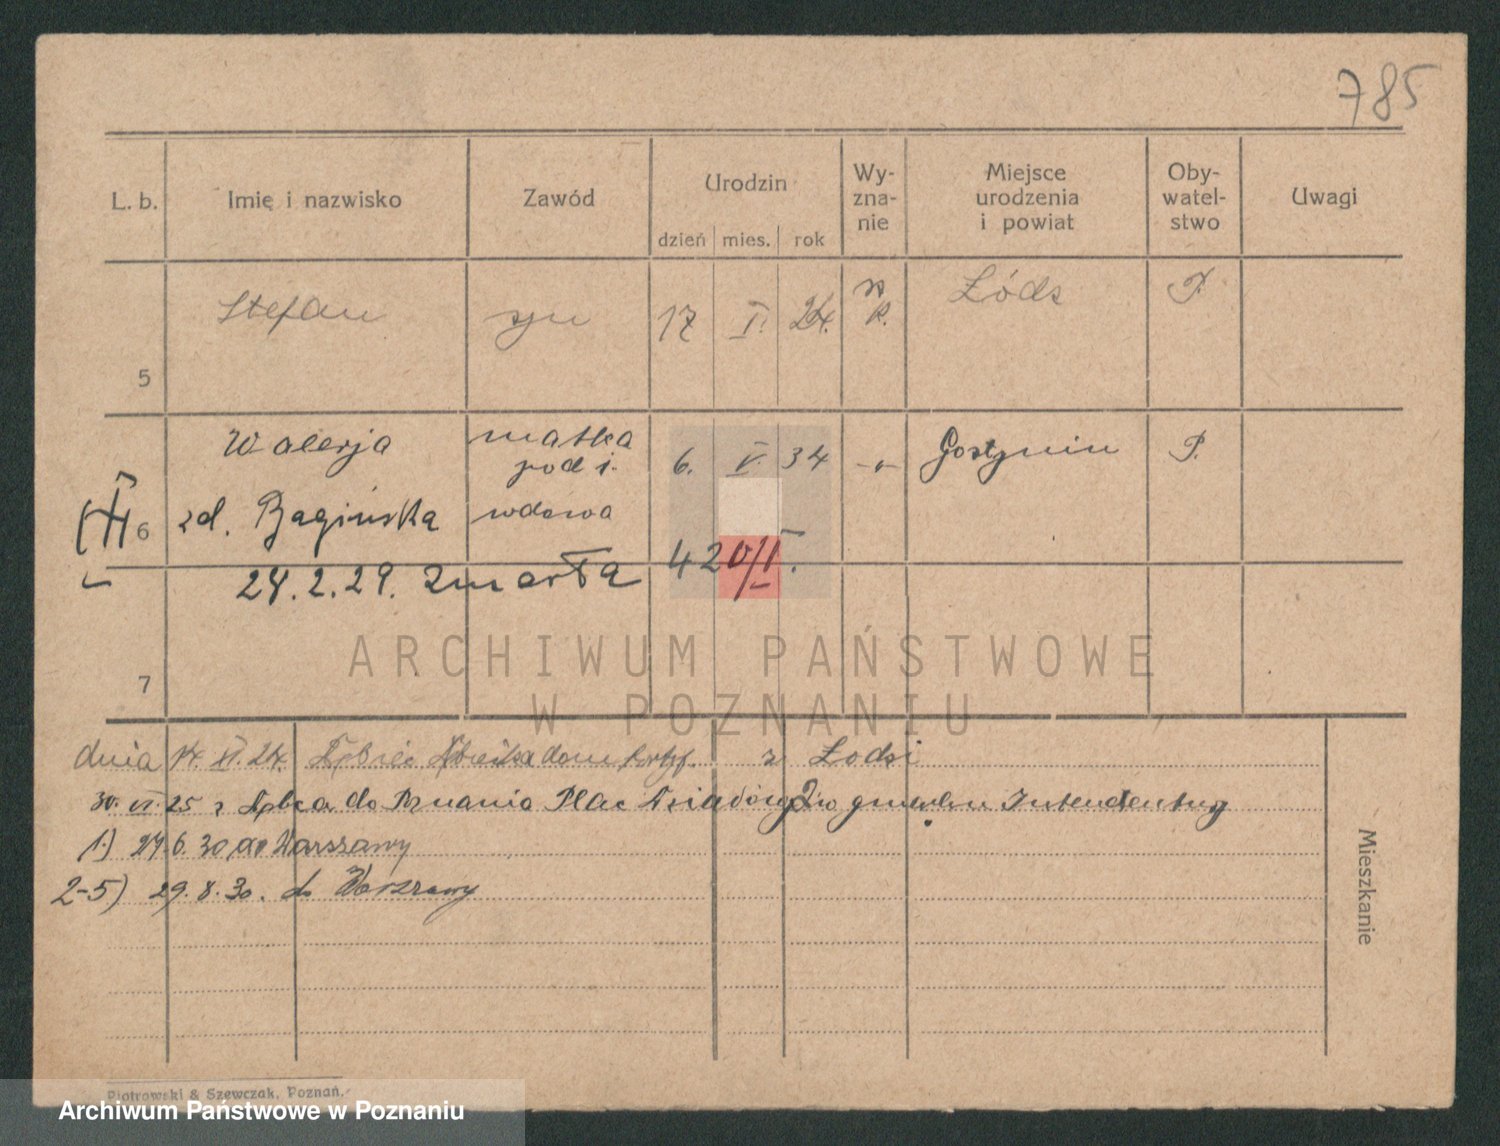 785
L. b. Imię i nazwisko Zawód Urodzin Wy-zna-nie Miejsce urodzenia i powiat Oby-watel-stwo Uwagi
dzień mies. rok
Stefan syn 17 I. 24. R. Łódz P.
5
Walerja matka 6. V. 34 -"- Gostynin P.
6 zd. Bagińska wdowa
24.2.29. zmarła 420/I.
7
ARCHIWUM PAŃSTWOWE
W POZNANIU
dnia 14. XI. 24. z Łodzi
30. VI. 25 z do Poznania Plac
1.) 24 6. 30 do Warszawy
2-5) 29. 8. 30. do Warszawy
Mieszkanie
Piotrowski & Szewczak, Poznań.
Archiwum Państwowe w Poznaniu